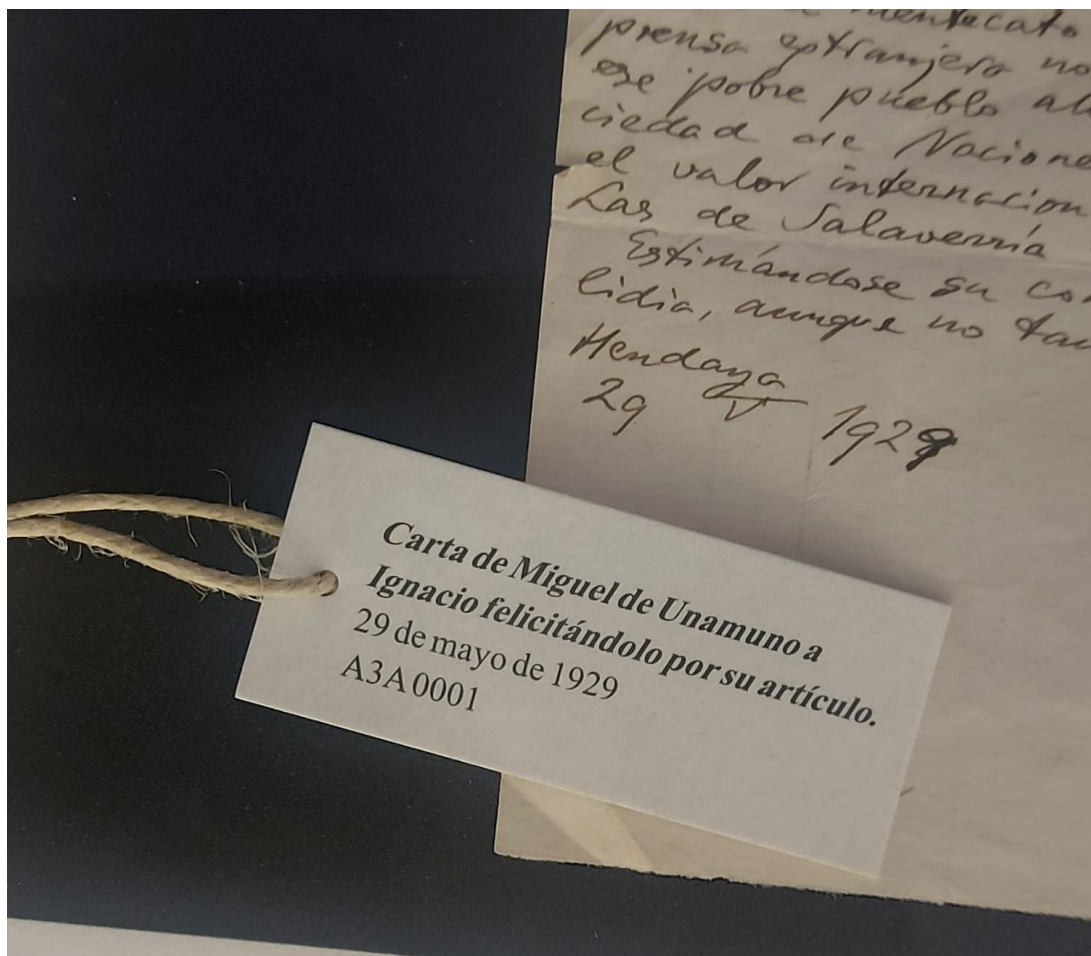 mentecato
prensa extranjera no
ese pobre pueblo
ciedad de Nacione
el valor internacion
Las de Salaverría
Estimándose su co
lidia, aunque no tau
Hendaya
29 V 1929
Carta de Miguel de Unamuno a
Ignacio felicitándolo por su artículo.
29 de mayo de 1929
A3A0001